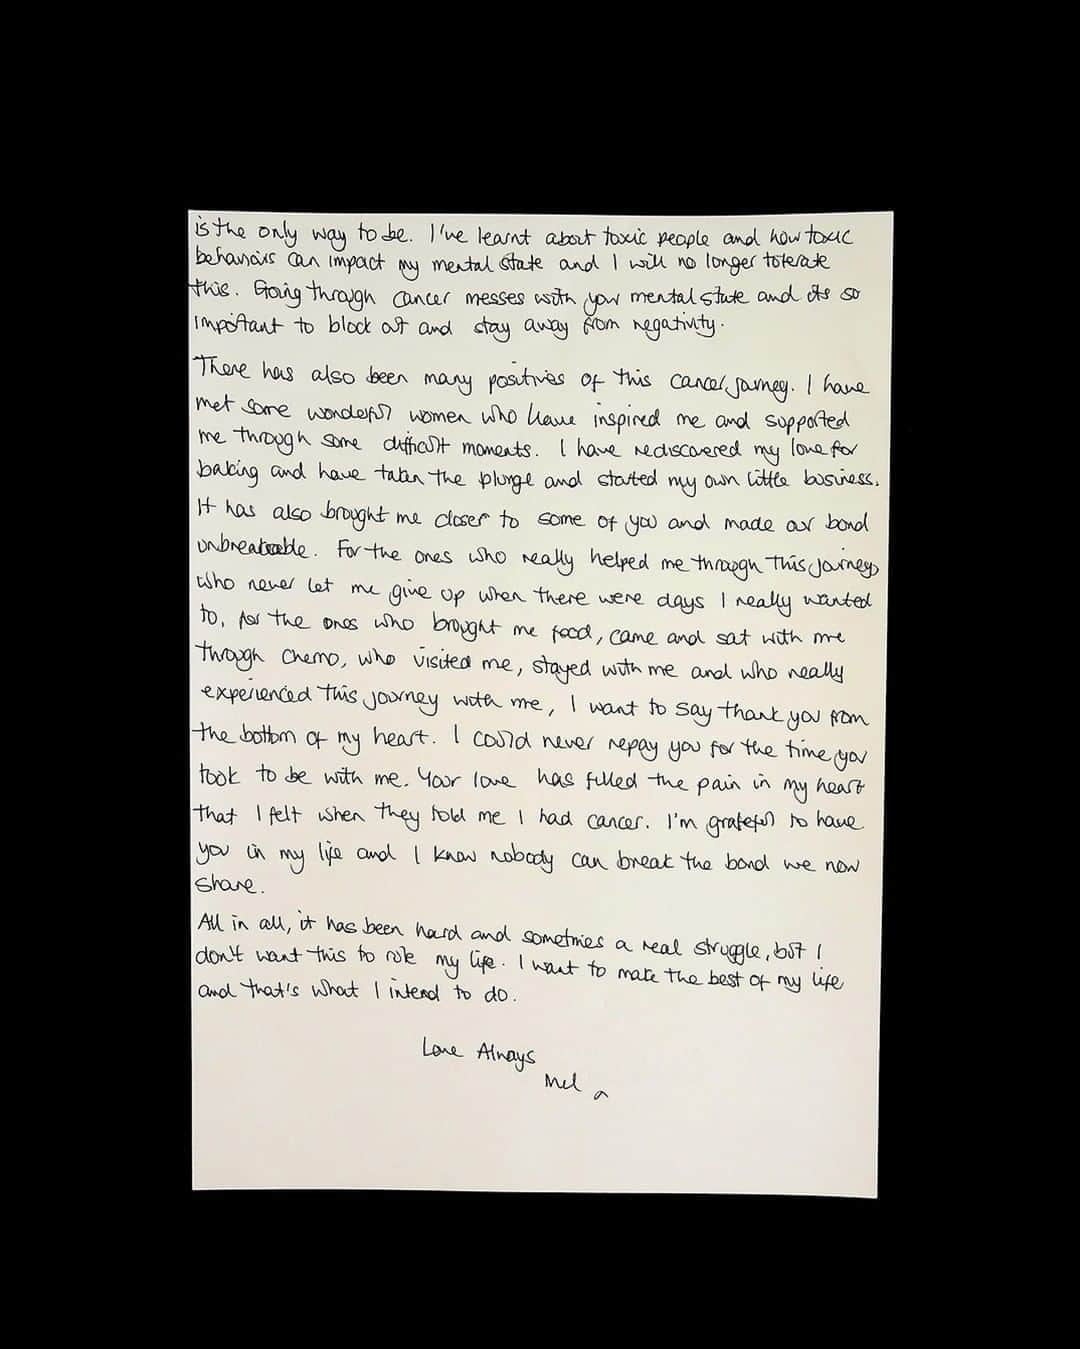 is the only way to be. I've learnt about toxic people and how toxic
behaviours can impact my mental state and I will no longer tolerate
this. Going through cancer messes with your mental state and its so
important to block out and stay away from negativity.
There has also been many positives of this cancer journey. I have
met some wonderful women who have inspired me and supported
me through some difficult moments. I have rediscovered my love for
baking and have taken the plunge and started my own little business.
It has also brought me closer to some of you and made our bond
unbreakable. For the ones who really helped me through this journey,
who never let me give up when there were days I really wanted
to, for the ones who brought me food, came and sat with me
through chemo, who visited me, stayed with me and who really
experienced this journey with me, I want to say thank you from
the bottom of my heart. I could never repay you for the time you
took to be with me. Your love has filled the pain in my heart
that I felt when they told me I had cancer. I'm grateful to have
you in my life and I know nobody can break the bond we now
share.
All in all, it has been hard and sometimes a real struggle, but I
don't want this to rule my life. I want to make the best of my life
and that's what I intend to do.
Love Always
Mel